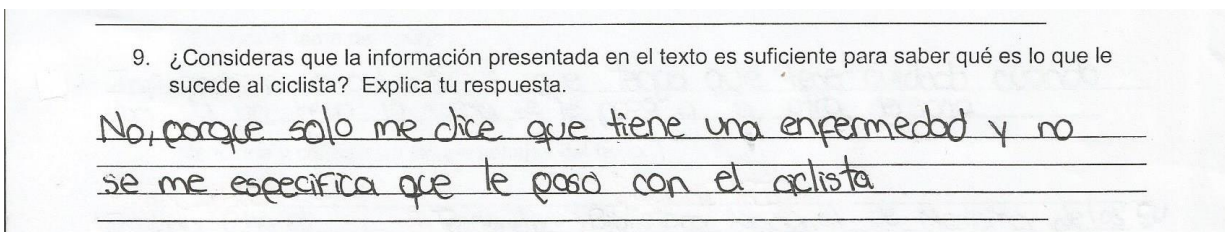 9. ¿Consideras que la información presentada en el texto es suficiente para saber qué es lo que le
sucede al ciclista? Explica tu respuesta.
No, porque solo me dice que tiene una enfermedad y no
se me especifica que le paso con el ciclista